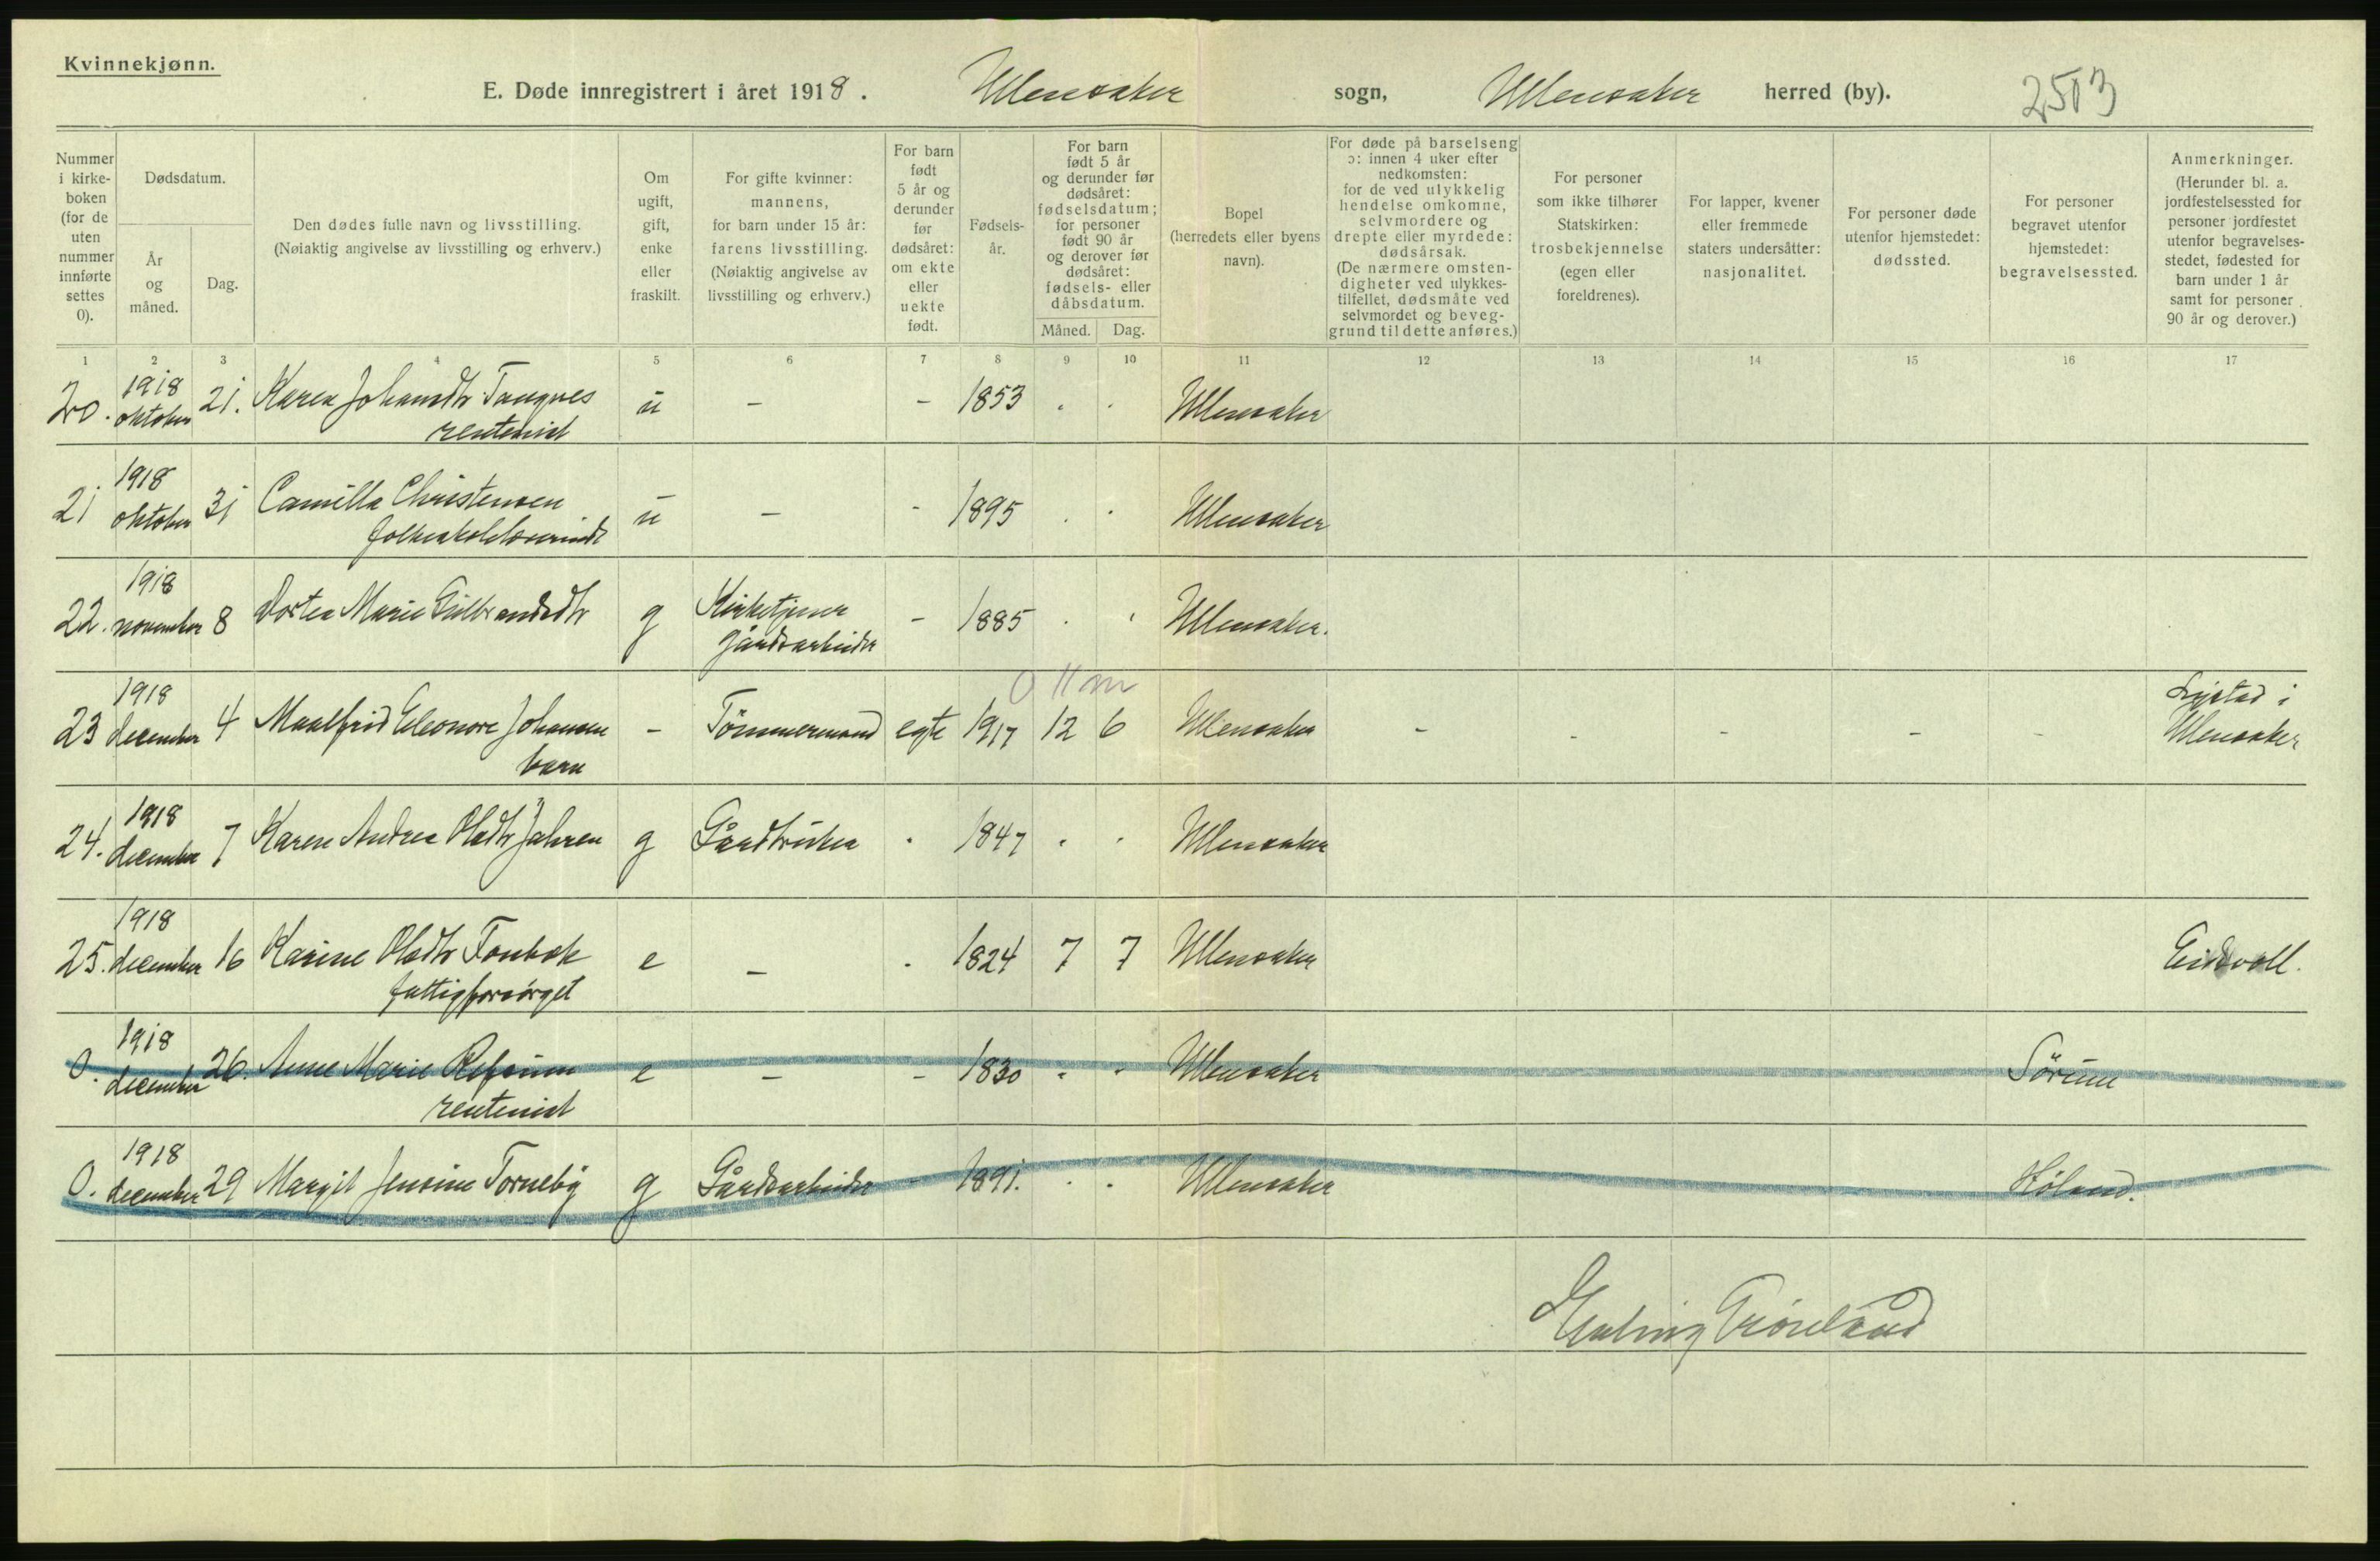 Kvinnekjønn.
E. Døde innregistrert i året 1918. Ullensaker sogn, Ullensaker herred (by). 2513
Nummer i kirke-boken (for de uten nummer innførte settes 0).
Dødsdatum.
År og måned.
Dag.
Den dødes fulle navn og livsstilling. (Nøiaktig angivelse av livsstilling og erhverv.)
Om ugift, gift, enke eller fraskilt.
For gifte kvinner: mannens, for barn under 15 år: farens livsstilling. (Nøiaktig angivelse av livsstilling og erhverv.)
For barn født 5 år og derunder før dødsåret: om ekte eller uekte født.
Fødsels-år.
For barn født 5 år og derunder før dødsåret: fødselsdatum; for personer født 90 år og derover før dødsåret: fødsels- eller dåbsdatum.
Måned.
Dag.
Bopel (herredets eller byens navn).
For døde på barselseng ɔ: innen 4 uker efter nedkomsten: for de ved ulykkelig hendelse omkomne, selvmordere og drepte eller myrdede: dødsårsak. (De nærmere omsten-digheter ved ulykkes-tilfellet, dødsmåte ved selvmordet og beveg-grund til dette anføres.)
For personer som ikke tilhører Statskirken: trosbekjennelse (egen eller foreldrenes).
For lapper, kvener eller fremmede staters undersåtter: nasjonalitet.
For personer døde utenfor hjemstedet: dødssted.
For personer begravet utenfor hjemstedet: begravelsessted.
Anmerkninger. (Herunder bl. a. jordfestelsessted for personer jordfestet utenfor begravelses-stedet, fødested for barn under 1 år samt for personer 90 år og derover.)
1 2 3 4 5 6 7 8 9 10 11 12 13 14 15 16 17
20. 1918 oktober 21. Karen Johansdtr Tangnes u - - 1853 Ullensaker
rentenist
21 1918 oktober 31 Camilla Christensen u - - 1895 Ullensaker
folkeskolelærerinde
22. 1918 november 8 Dortea Marie Gulbrandsdtr g Kirketjener - 1885 Ullensaker.
gårdsarbeider
0 11 m
23 1918 december 4 Maalfrid Eleonore Johansen - Tömmermand egte 1917 12 6 Ullensaker - - - - - Lystad i Ullensaker
barn
24. 1918 december 7 Karen Andrea Olsdtr Jahren g Gårdbruker 1847 Ullensaker
25. 1918 december 16 Karine Olsdtr Fonbæk e - - 1824 7 7 Ullensaker Eidsvoll.
fattigforsörget
0. 1918 december 26. Anne Marie Refsum e - - 1830 Ullensaker Sörum
rentenist
0. 1918 december 29 Margit Jensine Torneby g Gårdsarbeider - 1891. Ullensaker Höland.
Erling Grönland